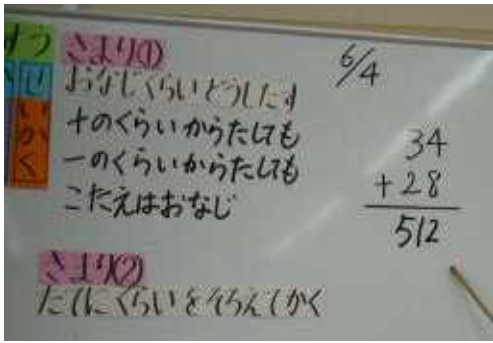 さより(1)
おなじくらいどうしたす
十のくらいからたしても
一のくらいからたしても
こたえはおなじ
さより(2)
たてにくらいをそろえてかく
6/4
34
+28
512